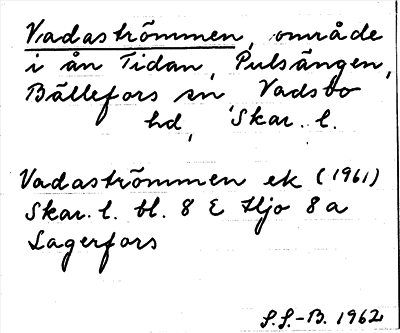 Vadaströmmen, område
i ån Tidan, Pulsängen,
Bällefors sn, Vadsbo
hd, Skar. l.
Vadaströmmen ek (1961)
Skar. l. bl. 8 E Hjo 8 a
Lagerfors
S.S.-B. 1962